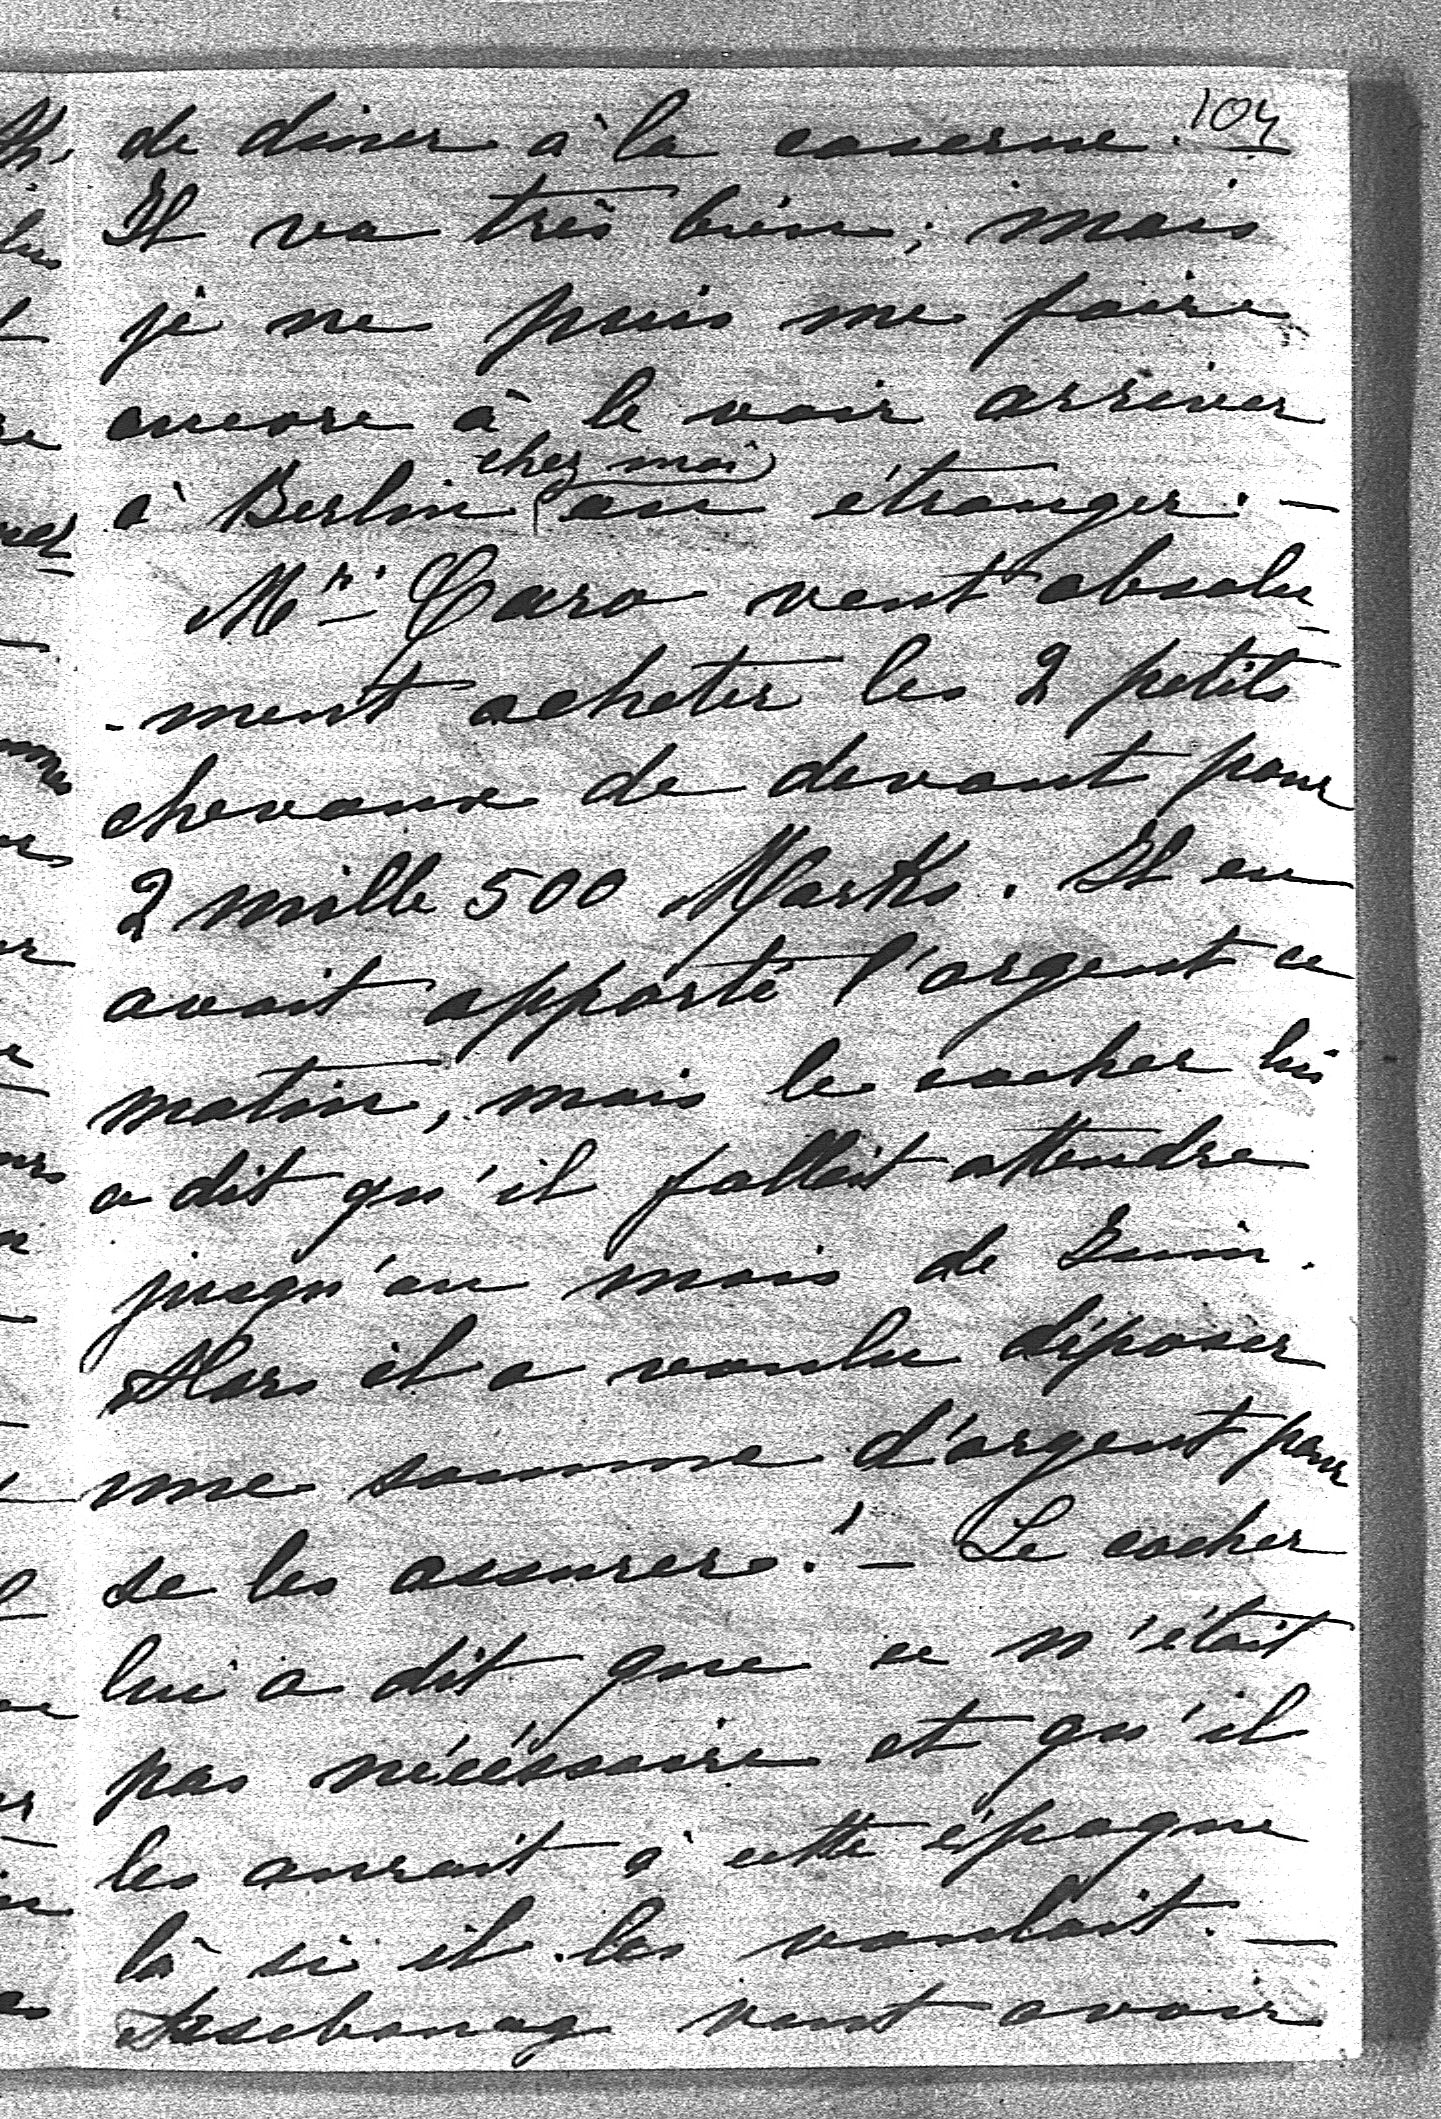 104
de diner à la caserne. —
Il va très bien; mais
je ne puis me faire
encore à le voir arriver
chez moi
à Berlin en étranger. —
Mr. Caro veut absolu-
-ment acheter les 2 petits
chevaux de devant pour
2 mille 500 Marks. Il en
avait apporté l'argent ce
matin, mais le cocher lui
a dit qu'il fallait attendre
jusqu'au mois de Juin.
Alors il a voulu déposer
une somme d'argent pour
se les assurer! — Le cocher
lui a dit que ce n'était
pas nécéssaire et qu'il
les aurait à cette époque
là si il les voulait. —
veut avoir